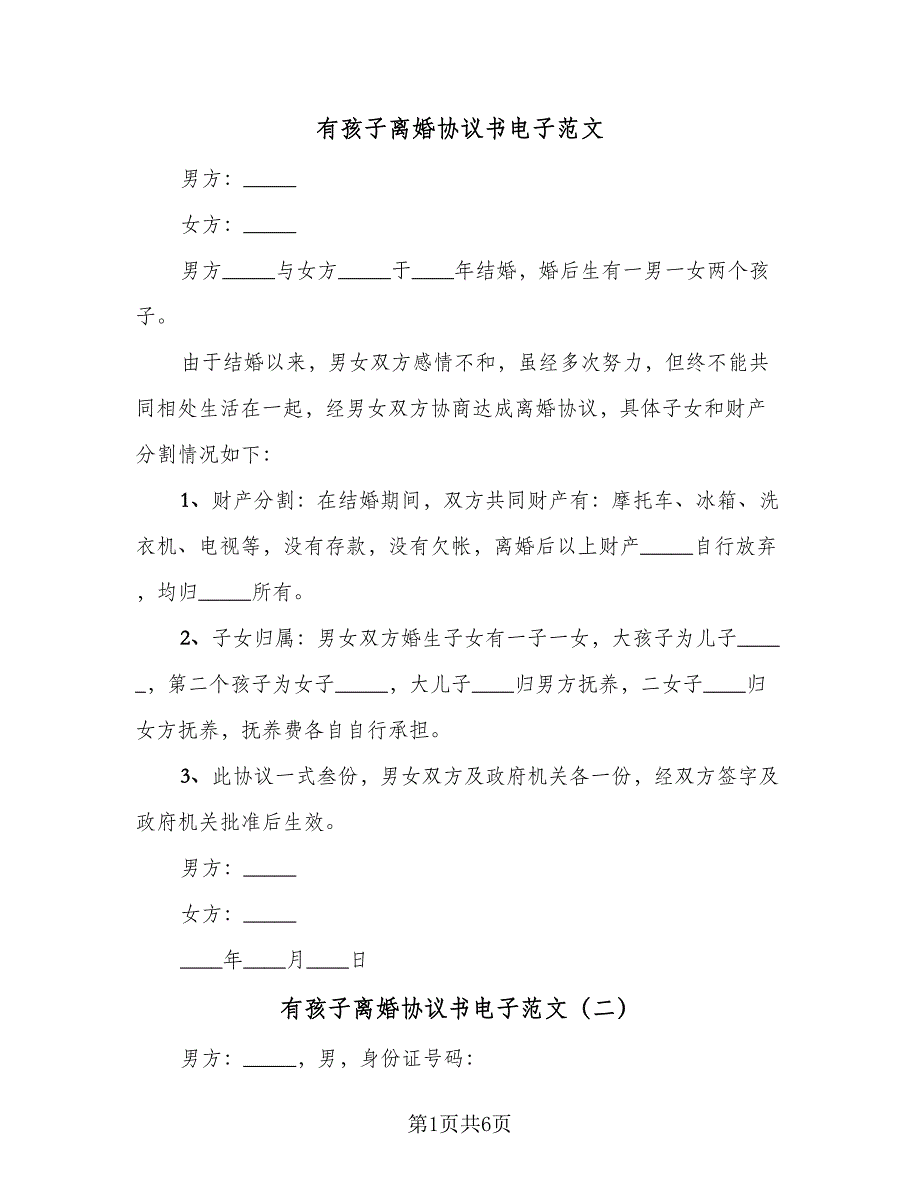 有孩子离婚协议书电子范文
男方：_____
女方：_____
男方_____与女方_____于____年结婚，婚后生有一男一女两个孩
子。
由于结婚以来，男女双方感情不和，虽经多次努力，但终不能共
同相处生活在一起，经男女双方协商达成离婚协议，具体子女和财产
分割情况如下：
1、财产分割：在结婚期间，双方共同财产有：摩托车、冰箱、洗
衣机、电视等，没有存款，没有欠帐，离婚后以上财产_____自行放弃
，均归_____所有。
2、子女归属：男女双方婚生子女有一子一女，大孩子为儿子____
_，第二个孩子为女子_____，大儿子____归男方抚养，二女子____归
女方抚养，抚养费各自自行承担。
3、此协议一式叁份，男女双方及政府机关各一份，经双方签字及
政府机关批准后生效。
男方：_____
女方：_____
____年____月____日
有孩子离婚协议书电子范文（二）
男方：_____，男，身份证号码：
第1页共6页